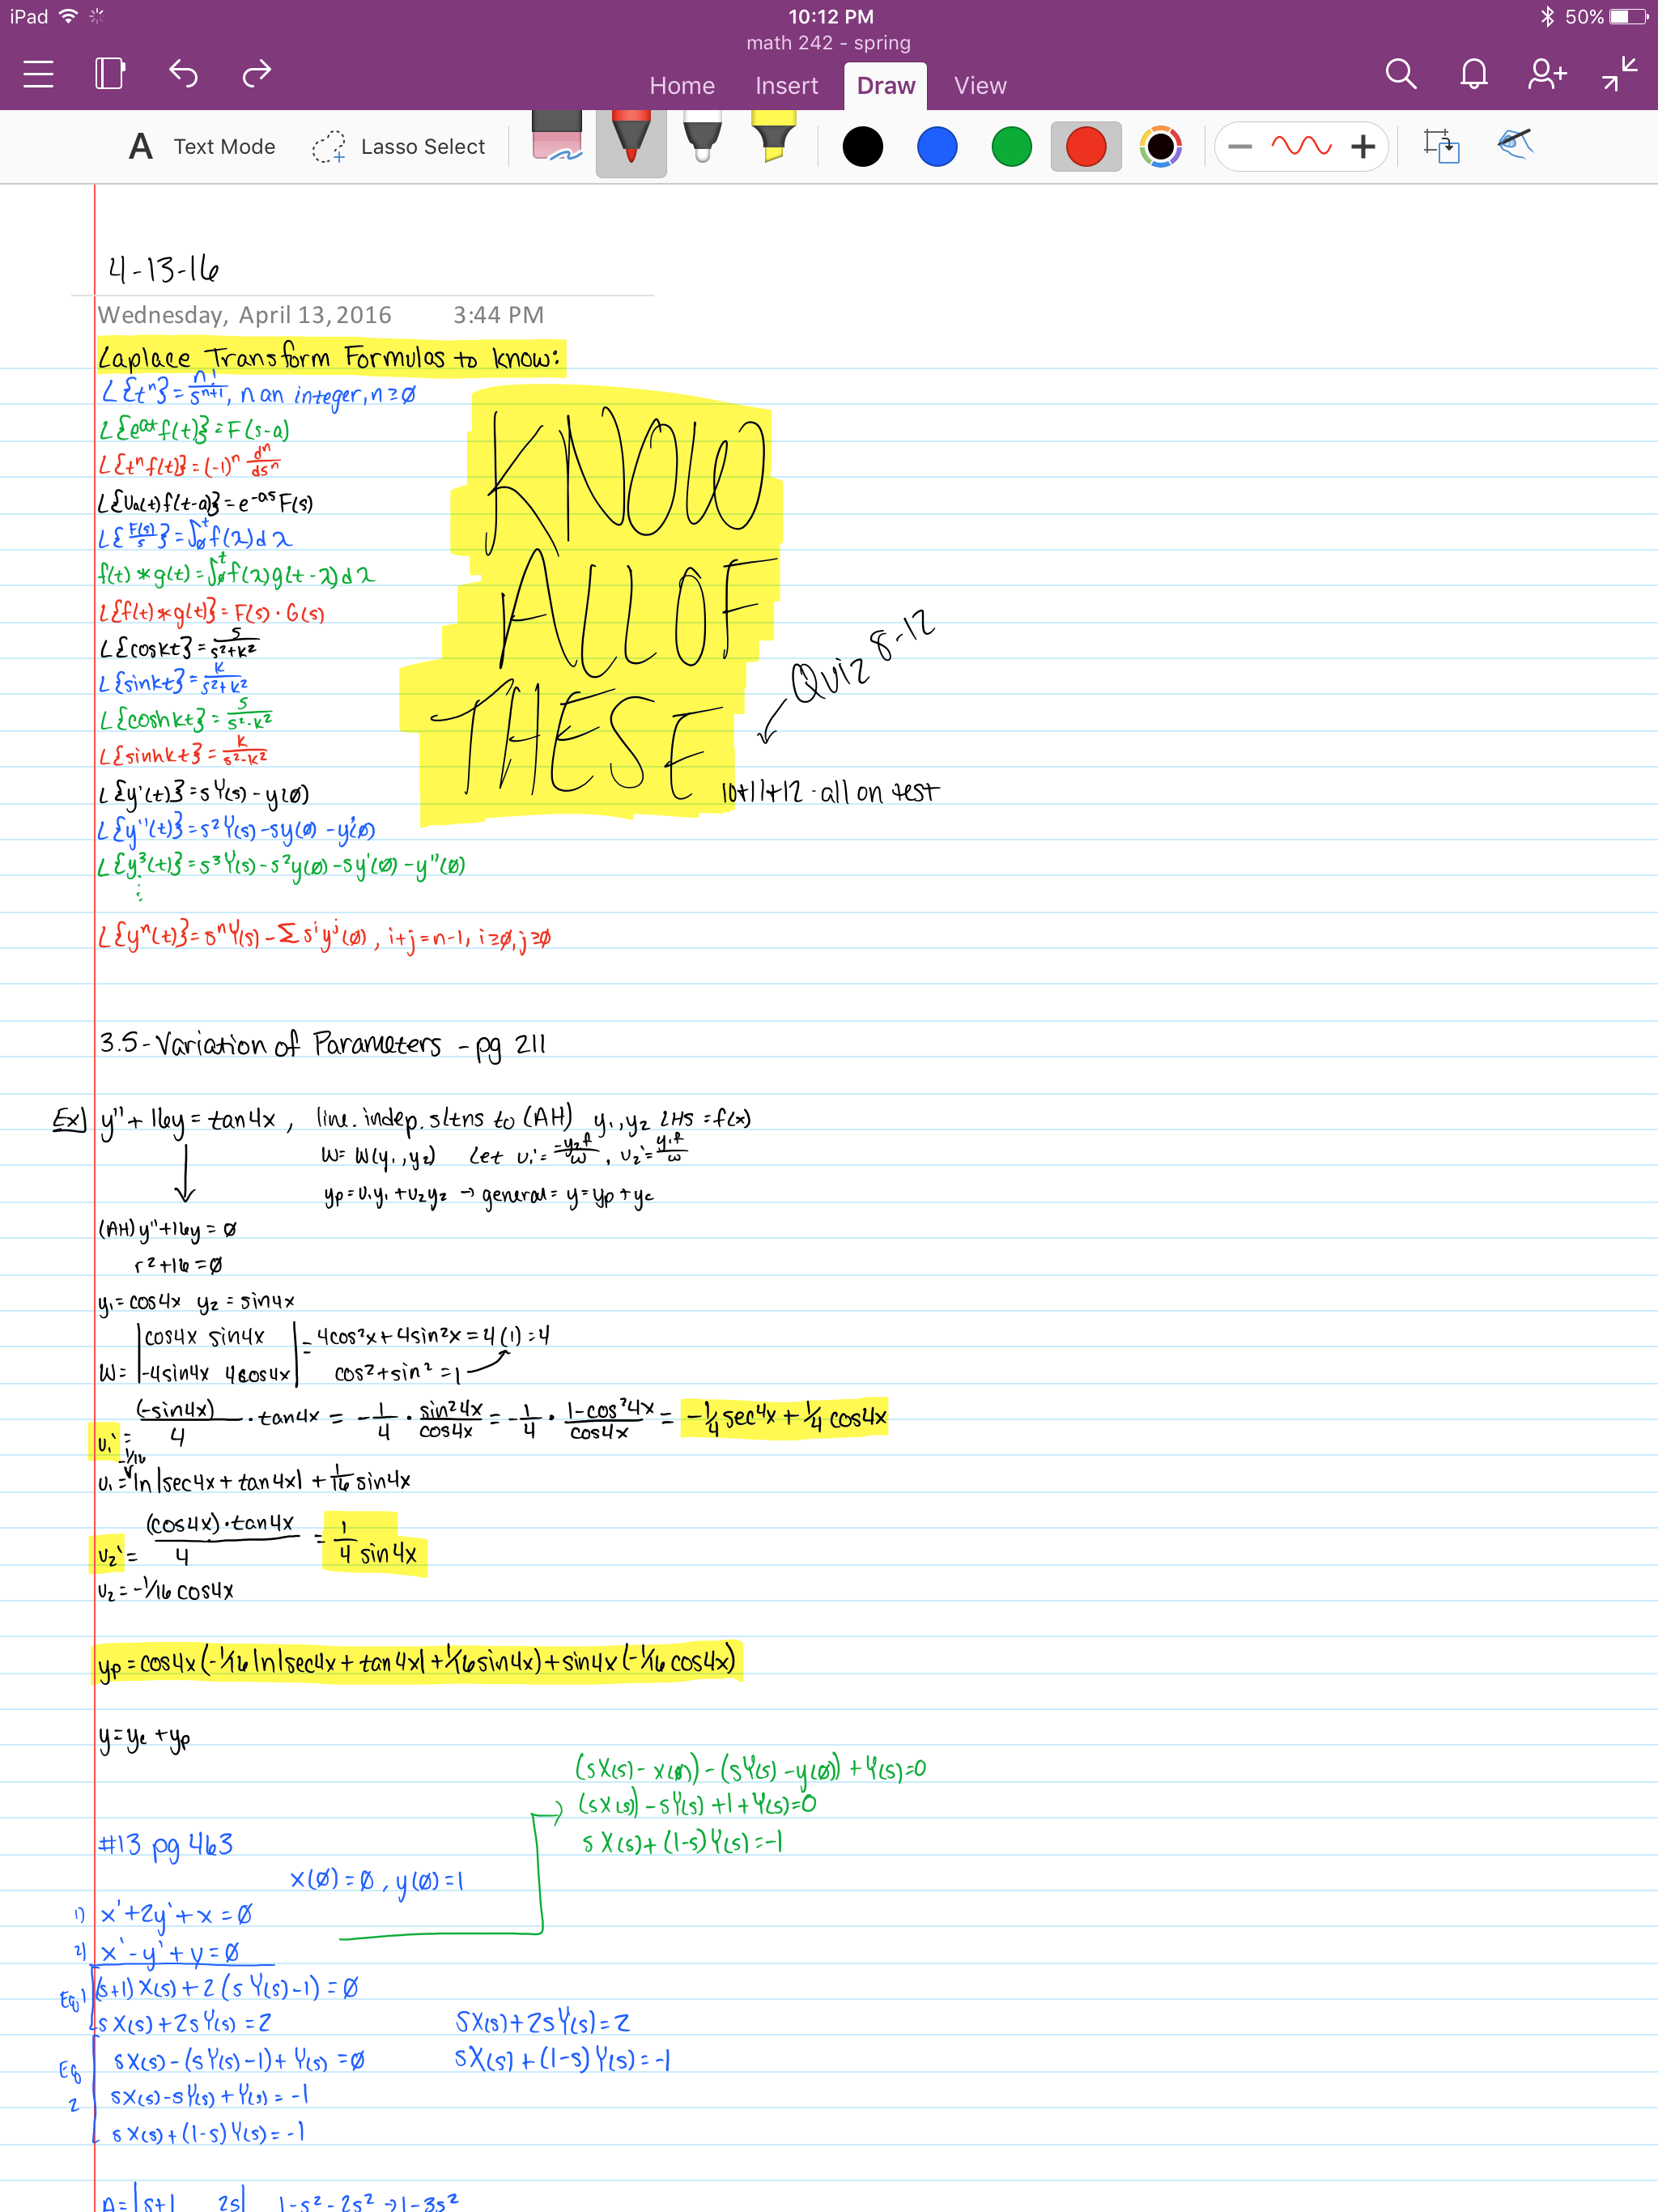 iPad 10:12 PM 50%
math 242 - spring
Home Insert Draw View
A Text Mode Lasso Select
4-13-16
Wednesday, April 13, 2016 3:44 PM
Laplace Transform Formulas to know:
L{tⁿ} = n!/sⁿ⁺¹, n an integer, n ≥ ∅
L{e^at f(t)} = F(s-a)
L{tⁿf(t)} = (-1)ⁿ dⁿ/dsⁿ
L{Ua(t)f(t-a)} = e^-as F(s)
L{F(s)/s} = ∫∅^t f(λ)dλ
f(t) * g(t) = ∫∅^t f(λ)g(t-λ)dλ
L{f(t) * g(t)} = F(s) · G(s)
L{coskt} = s/s²+k²
L{sinkt} = k/s²+k²
L{coshkt} = s/s²-k²
L{sinhkt} = k/s²-k²
L{y'(t)} = sY(s) - y(∅)
L{y''(t)} = s²Y(s) - sy(∅) - y'(∅)
L{y³(t)} = s³Y(s) - s²y(∅) - sy'(∅) - y''(∅)
⋮
L{yⁿ(t)} = sⁿY(s) - Σ sⁱyʲ(∅), i+j = n-1, i ≥ ∅, j ≥ ∅
KNOW
ALL OF
THESE
Quiz 8-12
10+11+12 - all on test
3.5 - Variation of Parameters - pg 211
Ex) y'' + 16y = tan4x, line. indep. sltns to (AH) y₁, y₂ LHS = f(x)
W = W(y₁, y₂) Let u₁' = -y₂f/W, u₂' = y₁f/W
yp = u₁y₁ + u₂y₂ → general = y = yp + yc
(AH) y'' + 16y = ∅
r² + 16 = ∅
y₁ = cos4x y₂ = sin4x
W = |cos4x sin4x| = 4cos²x + 4sin²x = 4(1) = 4
|-4sin4x 4cos4x| cos² + sin² = 1
u₁' = (-sin4x)/4 · tan4x = -1/4 · sin²4x/cos4x = -1/4 · 1-cos²4x/cos4x = -1/4 sec4x + 1/4 cos4x
u₁ = -1/16 ln|sec4x + tan4x| + 1/16 sin4x
u₂' = (cos4x)·tan4x/4 = 1/4 sin4x
u₂ = -1/16 cos4x
yp = cos4x(-1/16 ln|sec4x + tan4x| + 1/16 sin4x) + sin4x(-1/16 cos4x)
y = yc + yp
(sX(s) - x(∅)) - (sY(s) - y(∅)) + Y(s) = 0
(sX(s)) - sY(s) + 1 + Y(s) = 0
sX(s) + (1-s)Y(s) = -1
#13 pg 463
x(∅) = ∅, y(∅) = 1
1) x' + 2y' + x = ∅
2) x' - y' + y = ∅
Eq 1 (s+1)X(s) + 2(sY(s) - 1) = ∅
sX(s) + 2sY(s) = 2 sX(s) + 2sY(s) = 2
Eq 2 sX(s) - (sY(s) - 1) + Y(s) = ∅ sX(s) + (1-s)Y(s) = -1
sX(s) - sY(s) + Y(s) = -1
sX(s) + (1-s)Y(s) = -1
A = |s+1 2s| 1-s²-2s² → 1-3s²